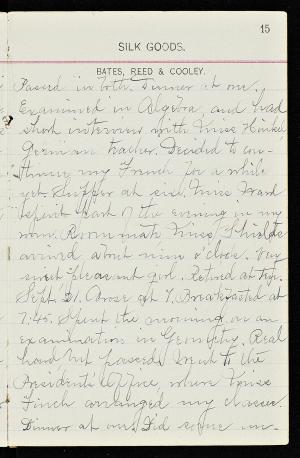 15
SILK GOODS.
BATES, REED & COOLEY.
Passed in both. Dinner at one.
Examined in Algebra, and had
short interview with Miss Hinkel
German teacher. Decided to con-
tinue my French for a while
yet. Supper at six. Miss Ward
spent part of the evening in my
room. Roommate Miss Shields
arrived about nine o'clock. Very
sweet pleasant girl. Retired at ten.
Sept. 21. Arose at 7. Breakfasted at
7:45. Spent the morning on an
examination in Geometry. Real
hard but passed. Went to the
President's Office, where Miss
Finch arranged my classes.
Dinner at one. Did some un-